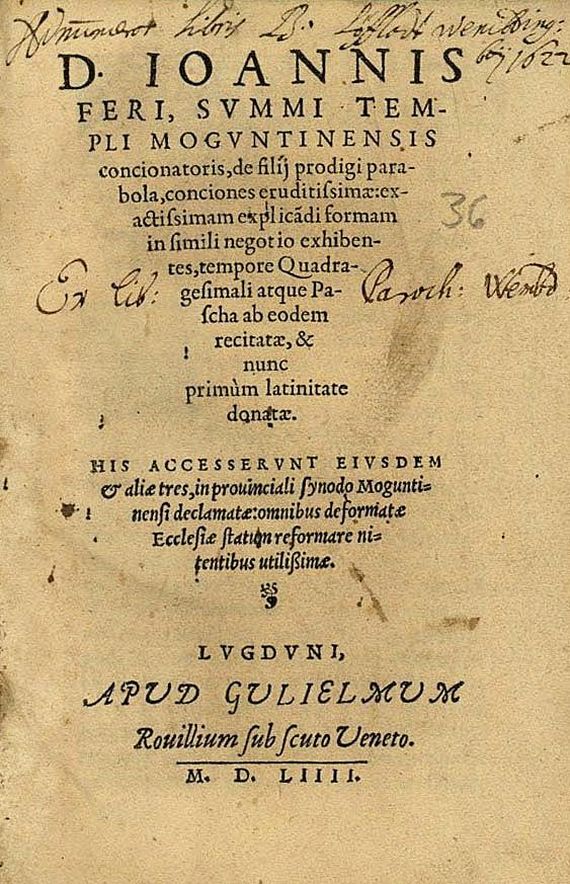 libris
1622
D. IOANNIS
FERI, SVMMI TEM-
PLI MOGVNTINENSIS
concionatoris, de filij prodigi para-
bola, conciones eruditiſsimæ: ex-
actiſsimam explicãdi formam
36
in ſimili negotio exhiben-
tes, tempore Quadra-
Ex lib: geſimali atque Pa- Paroch: Wembd
ſcha ab eodem
recitatæ, &
nunc
primùm latinitate
donatæ.
HIS ACCESSERVNT EIVSDEM
& aliæ tres, in prouinciali ſynodo Mogunti-
nenſi declamatæ: omnibus deformatæ
Eccleſiæ ſtatum reformare ni-
tentibus utilißimæ.
LVGDVNI,
APUD GULIELMUM
Rouillium ſub ſcuto Veneto.
M. D. LIIII.